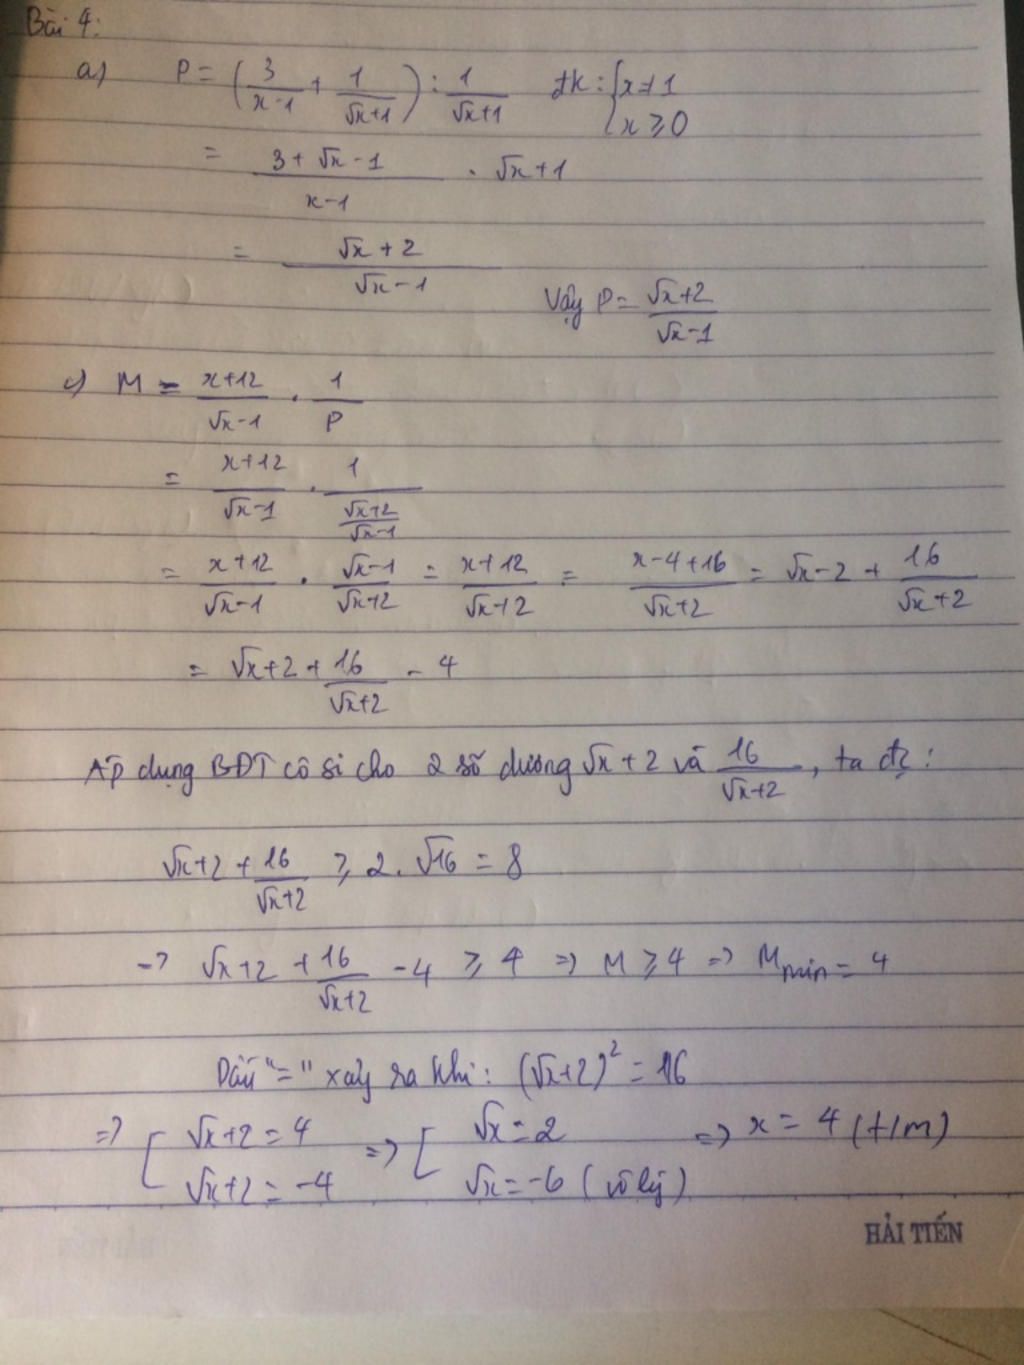 Bài 4:
a) P = (3/(x-1) + 1/(√x+1)) : 1/(√x+1) đk: {x≠1
x ≥ 0
= (3+√x-1)/(x-1) . √x+1
= (√x+2)/(√x-1)
Vậy P = (√x+2)/(√x-1)
c) M = (x+12)/(√x-1) . 1/P
= (x+12)/(√x-1) . 1/((√x+2)/(√x-1))
= (x+12)/(√x-1) . (√x-1)/(√x+2) = (x+12)/(√x+2) = (x-4+16)/(√x+2) = √x-2 + 16/(√x+2)
= √x+2 + 16/(√x+2) - 4
Áp dụng BĐT cô si cho 2 số dương √x+2 và 16/(√x+2), ta đc:
√x+2 + 16/(√x+2) ≥ 2.√16 = 8
=> √x+2 + 16/(√x+2) - 4 ≥ 4 => M ≥ 4 => Mmin = 4
Dấu "=" xảy ra khi: (√x+2)² = 16
=> [√x+2 = 4 => [√x = 2 => x = 4 (t/m)
√x+2 = -4 √x = -6 (vô lý)
HẢI TIẾN